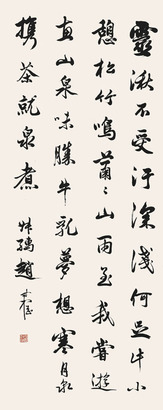 靈湫不受汙深淺何足計小
憩松竹鳴蕭〻山雨至我嘗遊
惠山泉味勝牛乳夢想寒月泉
攜茶就泉煮